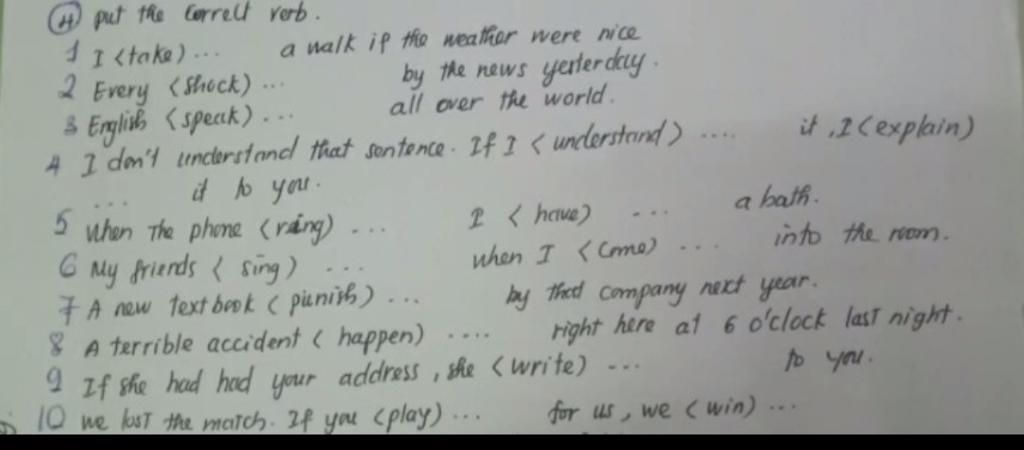 (4) put the correct verb.
1 I <take) ... a walk if the weather were nice
2 Every (shock) ... by the news yesterday.
3 English (speak) ... all over the world.
4 I don't understand that sentence. If I <understand> .... it, I (explain)
... it to you.
5 when The phone (ring) ... I <have) ... a bath.
6 My friends ( sing ) ... when I <come) ... into the room.
7 A new text book ( punish) ... by that company next year.
8 A terrible accident ( happen) .... right here at 6 o'clock last night.
9 If she had had your address, she <write) ... to you.
10 we lost the match. If you <play) ... for us, we (win) ...